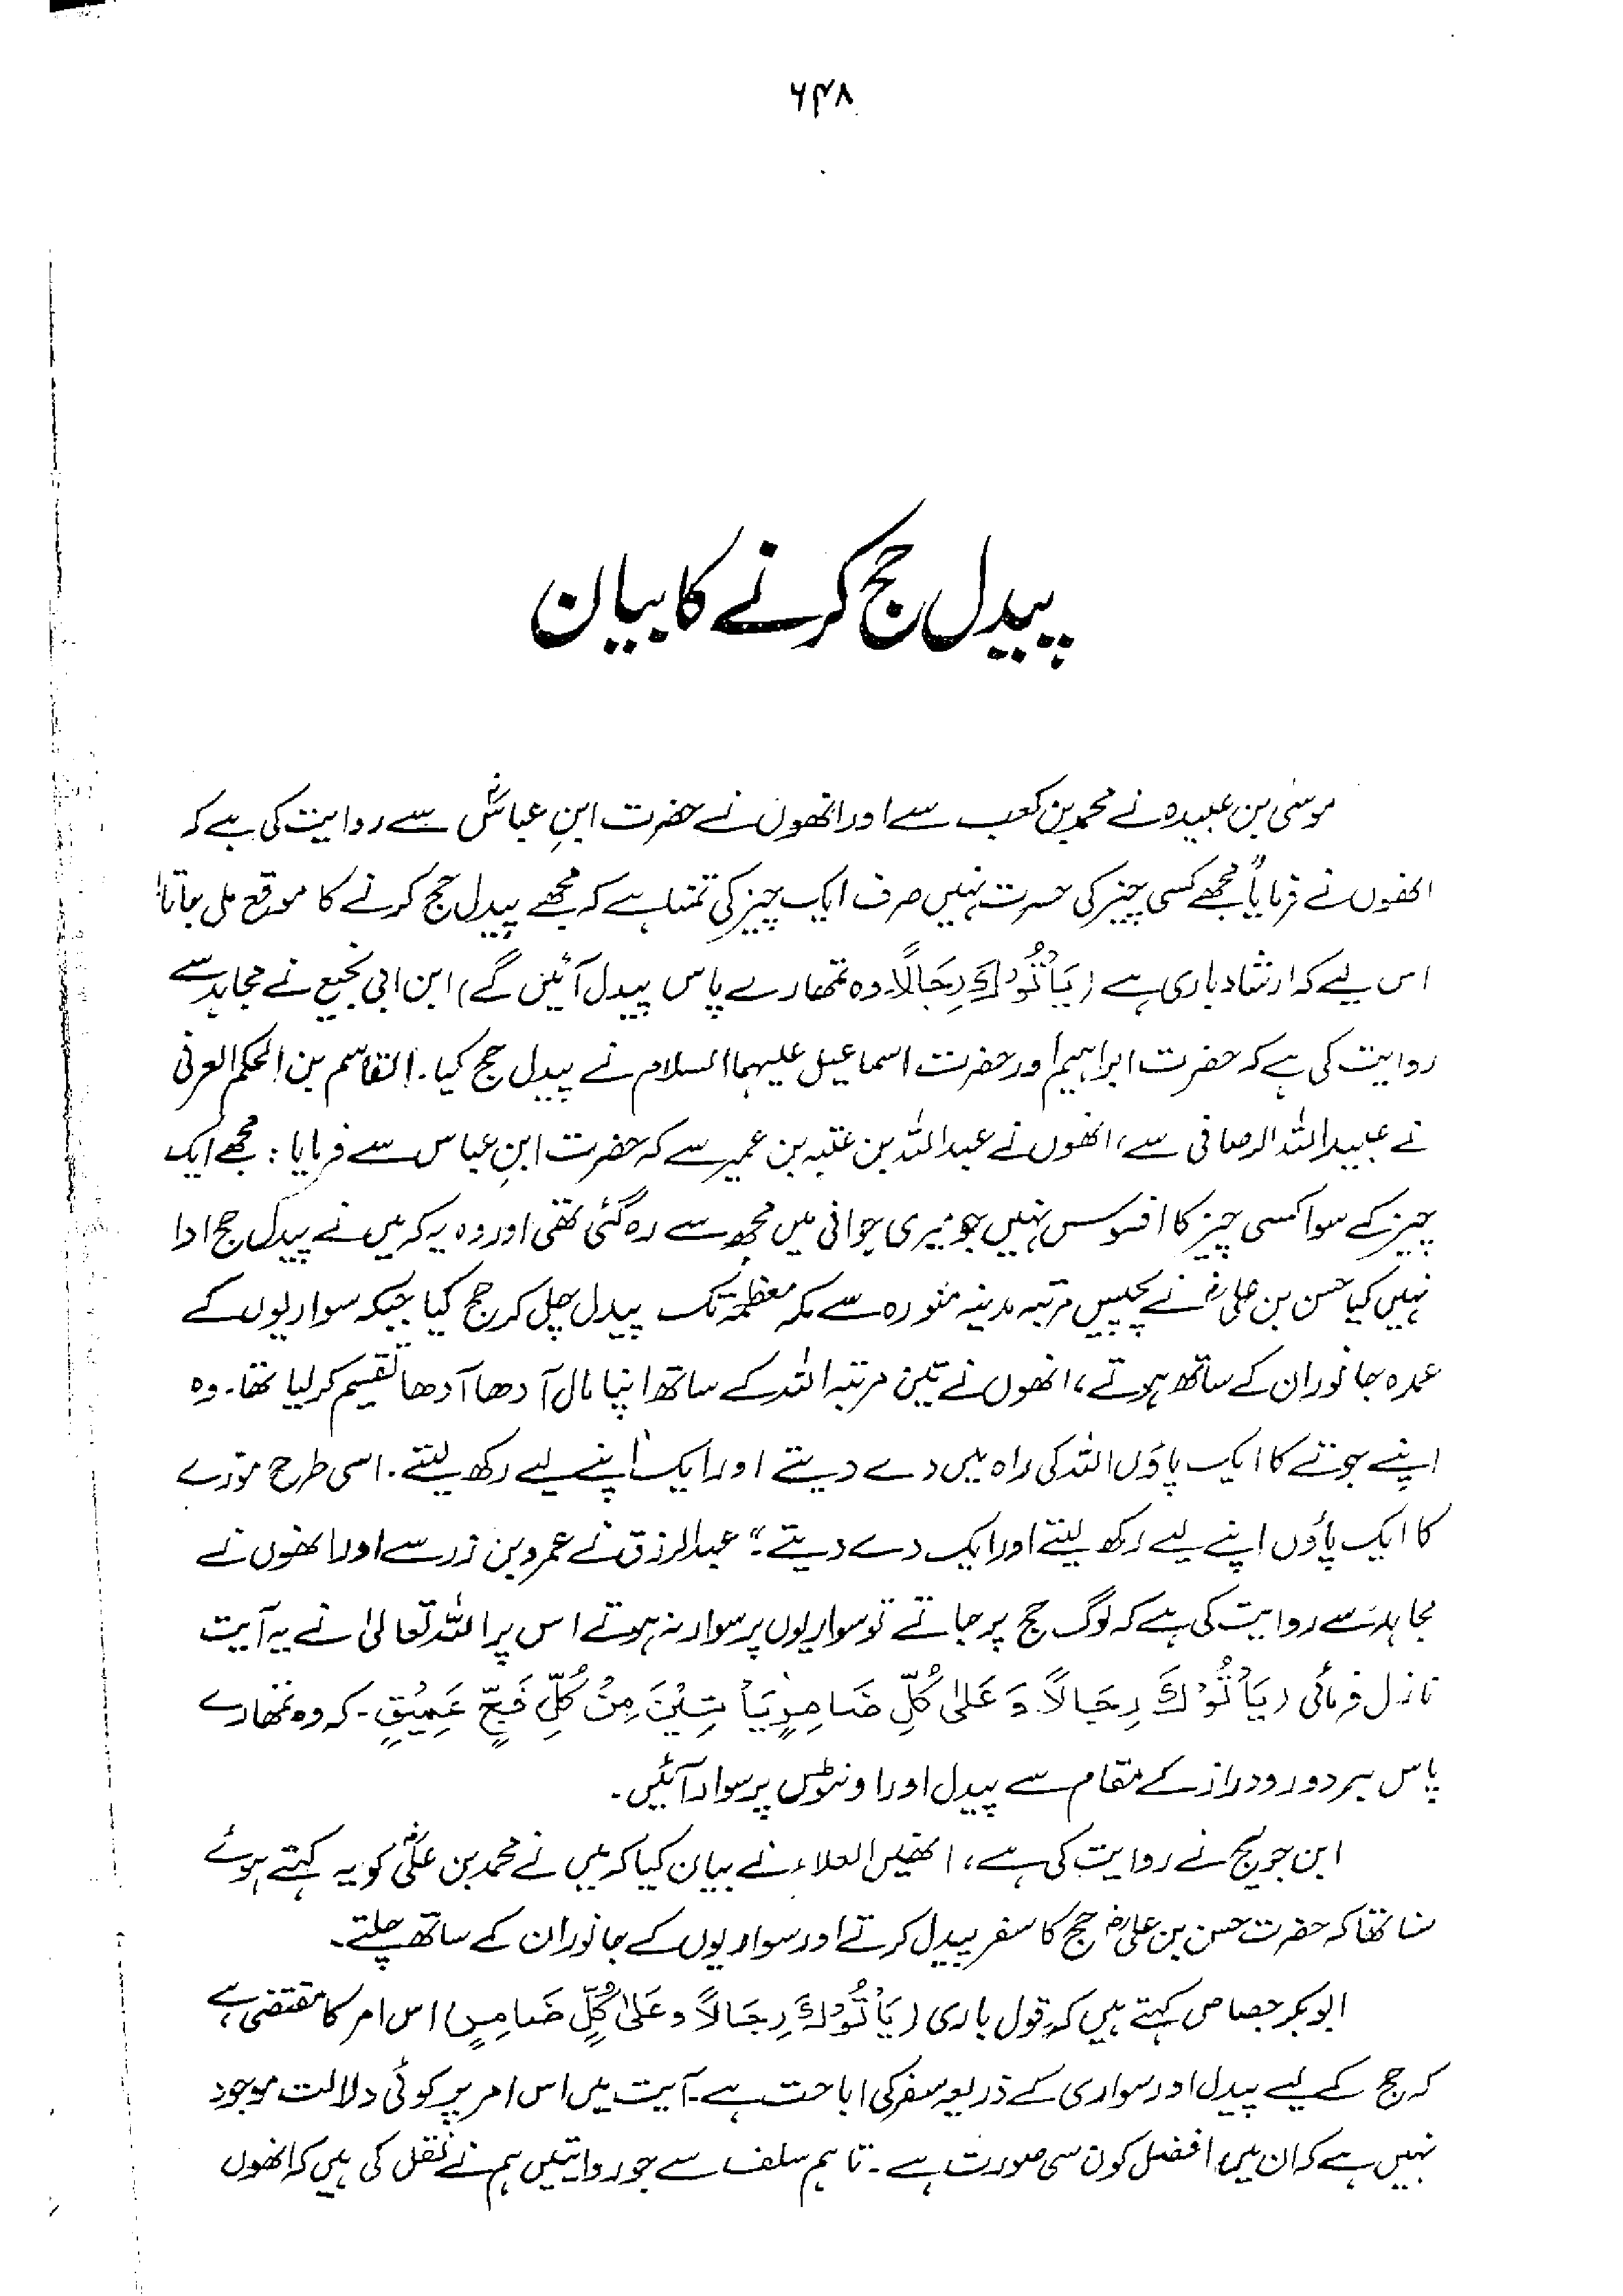 ۶۴۸
پیدل حج کرنے کا بیان
موسٰی بن عبیدہ نے محمد بن کعب سے اور انھوں نے حضرت ابنِ عباسؓ سے روایت کی ہے کہ
انھوں نے فرمایا "مجھے کسی چیز کی حسرت نہیں صرف ایک چیز کی تمنا ہے کہ مجھے پیدل حج کرنے کا موقع مل جاتا!
اس لیے کہ ارشاد باری ہے (یَأْتُوْكَ رِجَالًا۔ وہ تمھارے پاس پیدل آئیں گے) ابن ابی نجیح نے مجاہد سے
روایت کی ہے کہ حضرت ابراہیم اور حضرت اسماعیل علیہما السلام نے پیدل حج کیا۔ القاسم بن الحکم العرنی
نے عبیداللہ الرصافی سے، انھوں نے عبداللہ بن عتبہ بن عمیر سے کہ حضرت ابنِ عباس سے فرمایا: مجھے ایک
چیز کے سوا کسی چیز کا افسوس نہیں جو میری جوانی میں مجھ سے رہ گئی تھی اور وہ یہ کہ میں نے پیدل حج ادا
نہیں کیا حسن بن علیؓ نے پچیس مرتبہ مدینہ منورہ سے مکہ معظمہ تک پیدل چل کر حج کیا جبکہ سواریوں کے
عمدہ جانور ان کے ساتھ ہوتے، انھوں نے تین مرتبہ اللہ کے ساتھ اپنا مال آدھا آدھا تقسیم کر لیا تھا۔ وہ
اپنے جوتے کا ایک پاؤں اللہ کی راہ میں دے دیتے اور ایک اپنے لیے رکھ لیتے۔ اسی طرح موزے
کا ایک پاؤں اپنے لیے رکھ لیتے اور ایک دے دیتے۔" عبدالرزق نے عمرو بن زر سے اور انھوں نے
مجاہد سے روایت کی ہے کہ لوگ حج پر جاتے تو سواریوں پر سوار نہ ہوتے اس پر اللہ تعالیٰ نے یہ آیت
نازل فرمائی (یَأْتُوْكَ رِجَالًا وَّ عَلٰی كُلِّ ضَامِرٍ یَّأْتِیْنَ مِنْ كُلِّ فَجٍّ عَمِیْقٍ۔ کہ وہ تمھارے
پاس ہر دور و دراز کے مقام سے پیدل اور اونٹوں پر سوار آئیں۔
ابن جریج نے روایت کی ہے، انھیں العلاء نے بیان کیا کہ میں نے محمد بن علیؓ کو یہ کہتے ہوئے
سنا تھا کہ حضرت حسن بن علیؓ حج کا سفر پیدل کرتے اور سواریوں کے جانور ان کے ساتھ چلتے۔
ابوبکر جصاص کہتے ہیں کہ قول باری (یَأْتُوْكَ رِجَالًا وَعَلٰی كُلِّ ضَامِرٍ) اس امر کا مقتضی ہے
کہ حج کے لیے پیدل اور سواری کے ذریعہ سفر کی اباحت ہے۔ آیت میں اس امر پر کوئی دلالت موجود
نہیں ہے کہ ان میں افضل کون سی صورت ہے۔ تاہم سلف سے جو روایتیں ہم نے نقل کی ہیں کہ انھوں